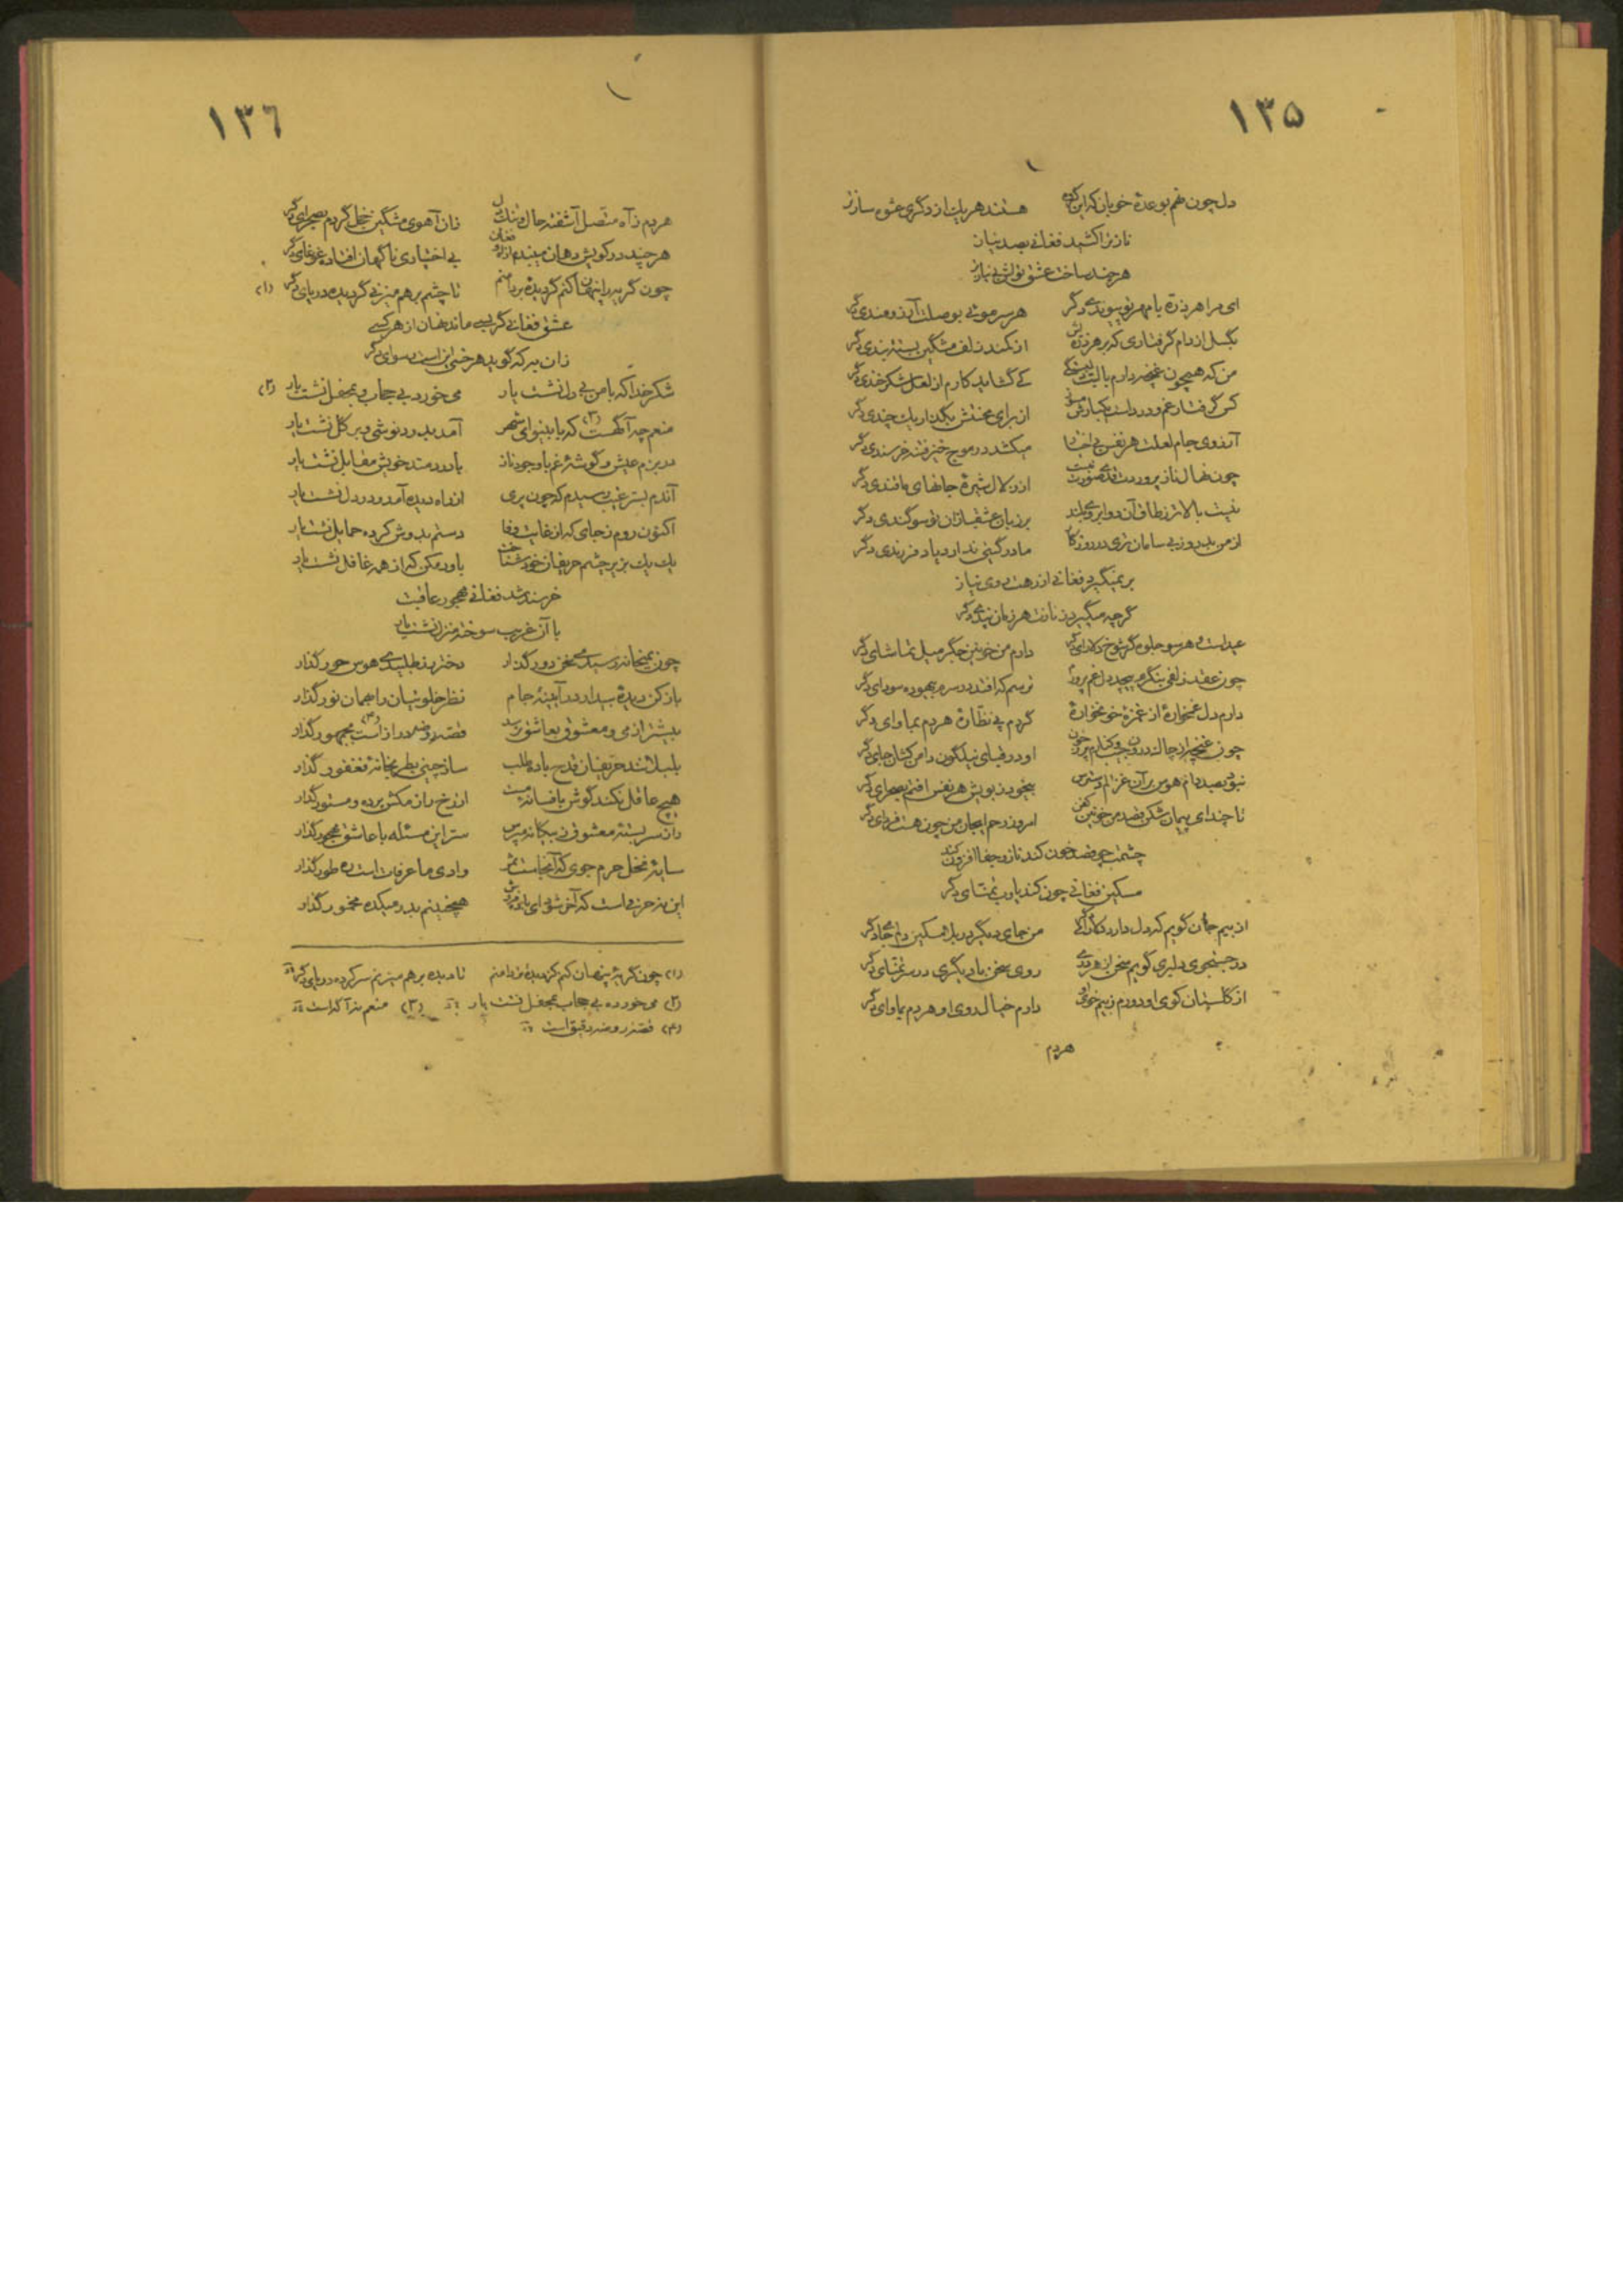 ۱۳۵
دل چون نهم بوعدهٔ خوبان که این گروه هستند هر یک از دگری عشوه سازتر
ناز ترا کشید فغانی بصد نیاز
هر چند ساخت عشق تواش بی نیازتر
ای مرا هر ذره با مهر تو پیوندی دگر هر سر مویی بوصلت آرزومندی دگر
بگسل از دام گرفتاری که بر هر از کمند زلف مشگین بسته بندی دگر
من که همچون غنچه دارم با لبت کی گشاید کارم از لعل شکرخندی دگر
کس گرفتار غم و درد است از برای محنتش بگذار یک چندی دگر
آرزوی جام لعلت هر نفس بی اختیار میکشد در موج خیز فتنه خرسندی دگر
چون نهال ناز پرورد از زلال شیرهٔ جانهای مانندی دگر
نیست بالاتر ز طاق آن دو ابروی بلند بر زبان عشقبازان تو سوگندی دگر
از من بد روز بی سامان تری در روزگار مادر گیتی ندارد یاد فرزندی دگر
بر نمیگیرد فغانی از رهت روی نیاز
گرچه میگیرد ز نازت هر زمان پندی دگر
عید است و هر سو جلوه گر شوخ دلارای دگر دارم من خونین جگر میل تماشای دگر
چون عقد زلفی بنگرم پیچد دل غم پرورم ترسم که افتد در سرم بیهوده سودای دگر
دارم دل غمخوارهٔ از غمزهٔ خونخوارهٔ گردم پی نظارهٔ هر دم بماوای دگر
چون غنچه او در قبای نیلگون دامن کشان جای دگر
نبود بصد دام هوس بر آن غزالم دسترس بیخود ز بویش هر نفس افتم بصحرای دگر
تا چند ای پیمان شکن قصد من خونین کفن امروز رحم ایجان من چون هست فردای دگر
چشمت چو قصد خون کند ناز و جفا افزون کند
مسکین فغانی چون کند یا رب تمنای دگر
از بیم جان گویم که دل دارد من جای دیگر
در جستجوی دلبری گویم سخن از هر دری روی سخن با دیگری در سر تمنای دگر
از گلستان کوی او دورم ز بیم خوی او دارم خیال روی او هر دم بماوای دگر
هردم
۱۳۶
هر دم ز آه متصل آشفته حال و تنگدل زان آهوی مشگین خجل گردم بصحرای دگر
هر چند در کویش دهان میبندم از آه و فغان بی اختیاری ناگهان افتاده غوغای دگر
چون گریه را پنهان کنم کز دیدهٔ پر دامنم تا چشم بر هم میزنی گردیده دریای دگر (۱)
عشق فغانی گر بسی ماند نهان از هر کسی
زان به که گوید هر خسی این است رسوای دگر
شکر خدا که با من بی دل نشست یار می خورد بی حجاب و بمحفل نشست یار (۲)
منعم چه آگهست (۳) که با بینوای شهر آمد بدرد نوشی و بر گل نشست یار
در بزم عیش و گوشهٔ غم با وجود ناز با دردمند خویش مقابل نشست یار
آندم بسر غیب رسیدم که چون پری از راه دیده آمد و در دل نشست یار
اکنون روم ز جای که از غایت وفا دستم بدوش کرده حمایل نشست یار
یک یک بزیر چشم حریفان خود شناخت باور مکن که از همه غافل نشست یار
خرسند شد فغانی مهجور عاقبت
با آن غریب سوخته منزل نشست یار
چون بمیخانه رسیدی سخن دور گذار دختر رز طلبیدی هوس حور گذار
باز کن دیدهٔ بیدار در آیینهٔ جام نظر خلوتیان را بهمان نور گذار
بیشتر از می و معشوق بعاشق نرسد قصهٔ روضه دراز است (۴) بجمهور گذار
بلبلانند حریفان قدح باده طلب ساز چینی بطربخانهٔ فغفور گذار
هیچ عاقل نکند گوش بافسانهٔ مست از رخ راز مکش پرده و مستور گذار
راز سر بستهٔ معشوق ز بیگانه مپرس ستر این مسئله با عاشق مهجور گذار
سایهٔ نخل حرم جوی که آنجاست ثمر وادی ما عرفات است ره طور گذار
این نه حرفی است که آخر شود ای باده فروش هیچ بینم بدر میکده مخمور گذار
(۱) چون گریه پنهان کنم کز دیدهٔ در دامنم تا دیده بر هم میزنم سر کرده دریای دگر
(۲) می خورده بی حجاب بمحفل نشست یار (۳) منعم نه آگه است
(۴) قصهٔ روضه دقیق است